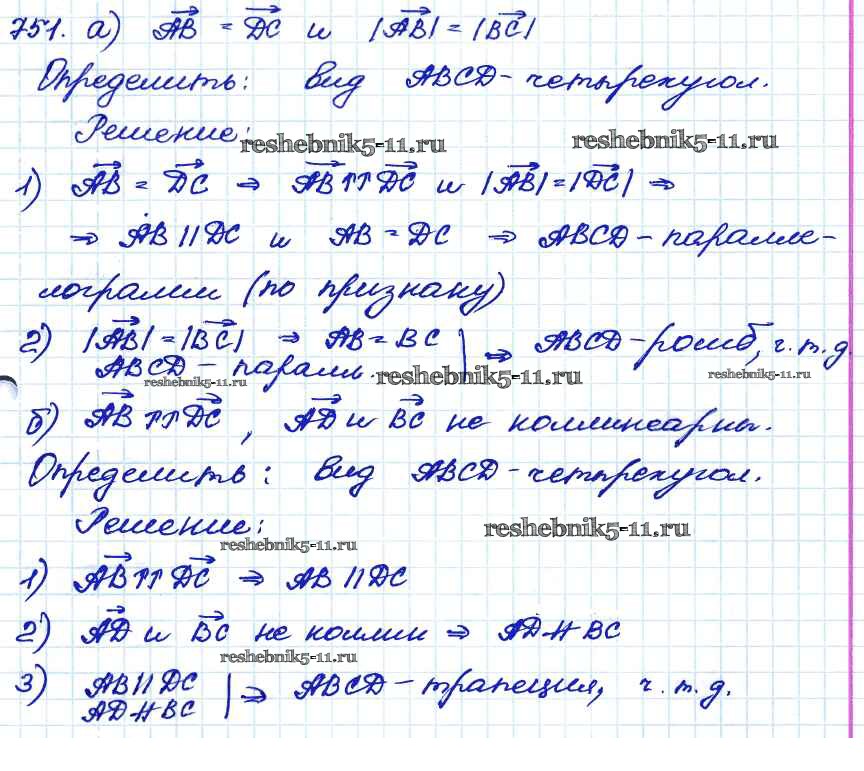 751. а) AB = DC и |AB| = |BC|
Определить: вид ABCD - четырехугол.
Решение:
reshebnik5-11.ru reshebnik5-11.ru
1) AB = DC ⇒ AB ↑↑ DC и |AB| = |DC| ⇒
⇒ AB || DC и AB = DC ⇒ ABCD - паралле-
лограмм (по признаку)
2) |AB| = |BC| ⇒ AB = BC | ⇒ ABCD - ромб, ч.т.д.
ABCD - паралл.
reshebnik5-11.ru reshebnik5-11.ru reshebnik5-11.ru
б) AB ↑↑ DC, AD и BC не коллинеарны.
Определить: вид ABCD - четырехугол.
Решение:
reshebnik5-11.ru
reshebnik5-11.ru
1) AB ↑↑ DC ⇒ AB || DC
2) AD и BC не коллин ⇒ AD ∦ BC
reshebnik5-11.ru
3) AB || DC | ⇒ ABCD - трапеция, ч.т.д.
AD ∦ BC